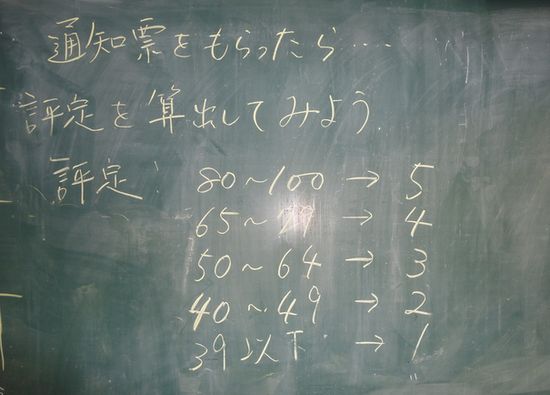 通知票をもらったら・・・・
評定を算出してみよう
評定: 80～100 → 5
65～79 → 4
50～64 → 3
40～49 → 2
39以下 → 1